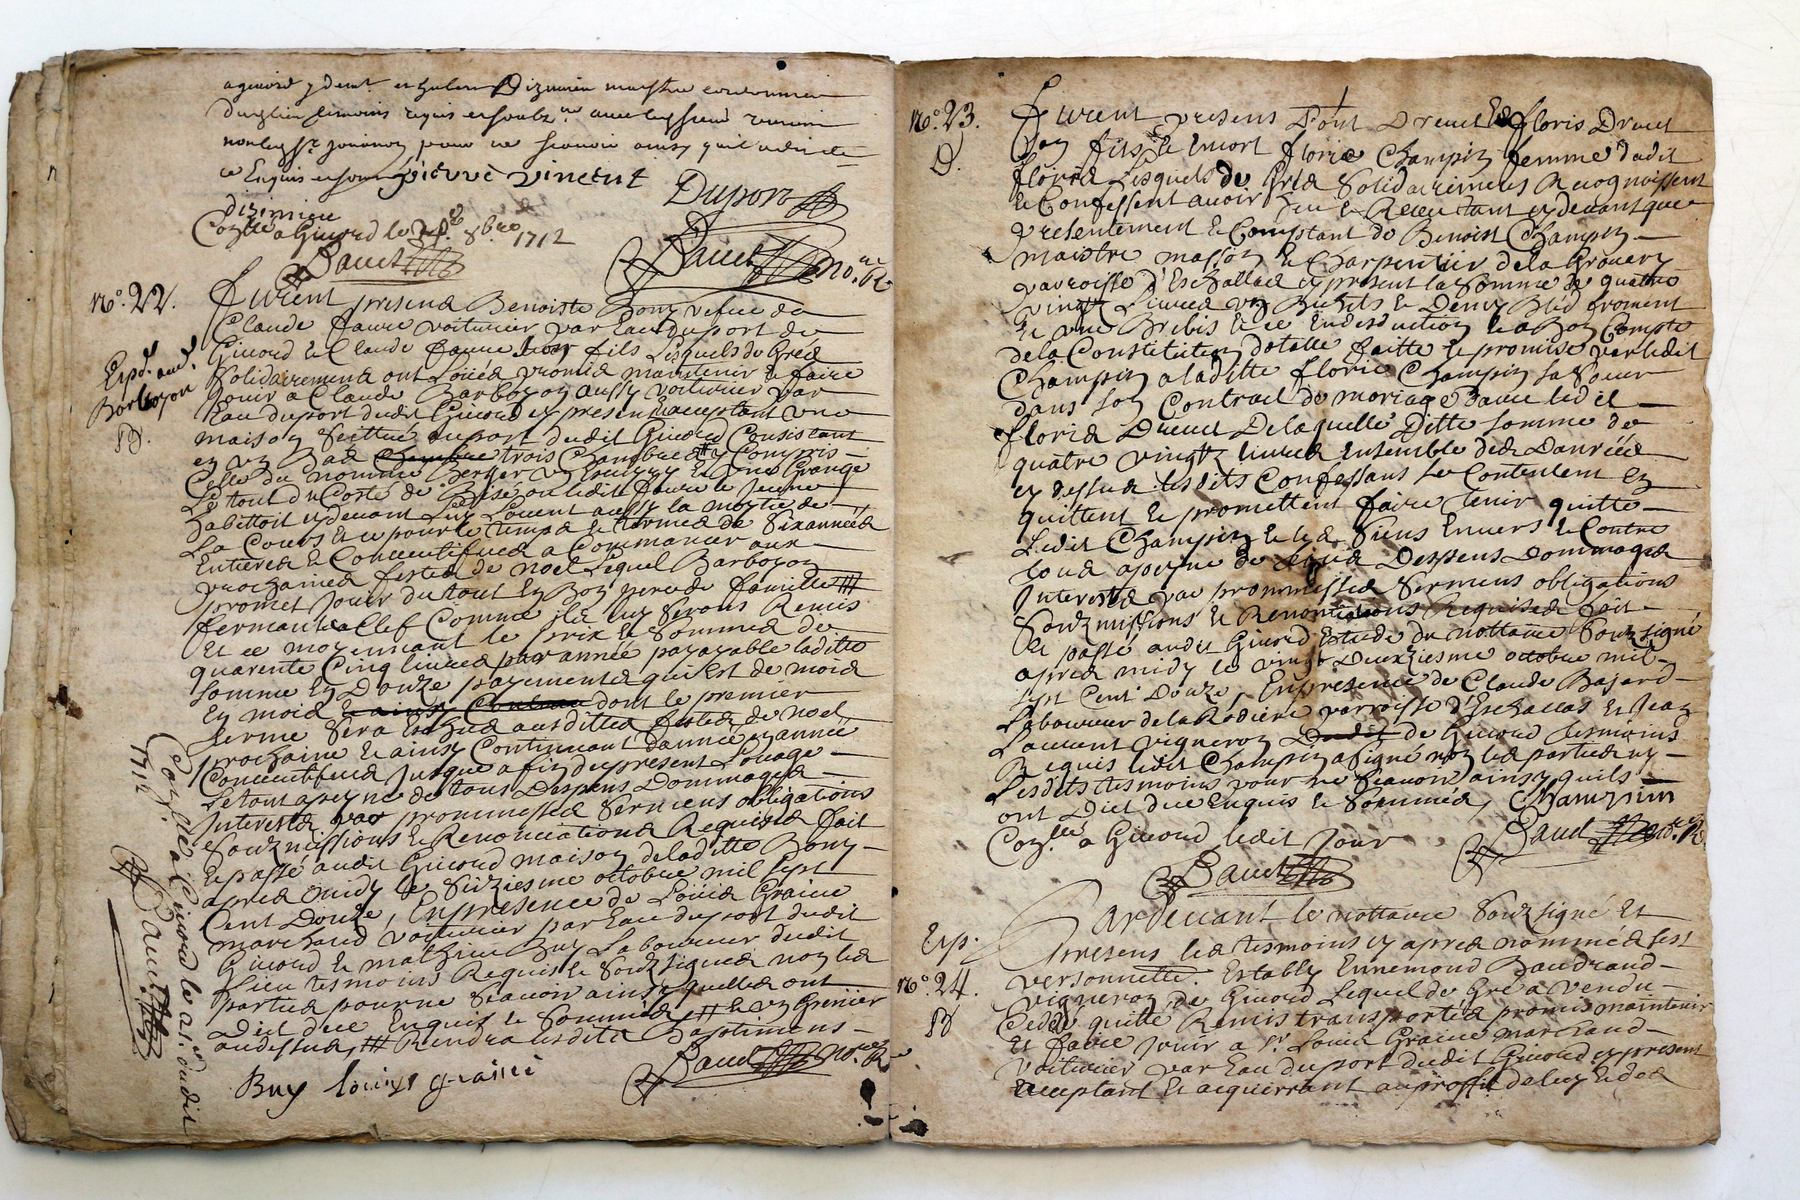 a givord
temoins requis et soubz.ne
pour ne scavoir ainsy
ce Enquis et sommé pierre vincent
Dupon
dizimiere
Con.lle a Givord le 24e 8bre 1712
Bauct
Bauct no.re R
No. 22.
Exp.é aud.
Barboyon
Furent presens Benoiste Bony vefve de
Claude faure voiturier par Eau du port de
Givord et Claude faure son fils Lesquels de Gréz
Solidairement ont Loüés promis maintenir et faire
Jouir a Claude Barboyon aussy voiturier par
Eau du port dudit Givord cy present et acceptant une
maison scittué au port dudit Givord Consistant
en un Bas chambre trois chambres # y Compris
Celle du nommé Berger une Grange
Le tout du Costé de Bise ou ledit faure le Jeune
habittoit cy devant Luy Louent aussy la moytie de
La Cours et ce pour le temps et termes de Six années
Entieres et Consecutifves a Commancer aux
prochaines festes de noel Lequel Barboyon
promet Jouir du tout En Bon pere de famille ##
fermant a Clef Comme ils luy Serons Remis
Et ce moyennant le prix et Somme de
quarente Cinq livres par année payable laditte
Somme En Douze payements qui Est de mois
En mois et ainsy Continue dont le premier
terme Sera Eschus ausdittes festes de noel
prochaine et ainsy Continuant d'année en année
Consecutifves Jusque a fin du present Louage
Le tout a peyne de tous Despens Dommages
Interests par prommesses Sermens obligations
Soubzmissions et Renonciations Requises fait
et passé audit Givord maison de laditte Bony
apres midy le Seiziesme octobre mil sept
Cent Douze, En presence de Loüis Graine
marchand voiturier par Eau du port dudit
Givord et mathieu Buy Laboureur dudit
Lieu tesmoins Requis et Soubzsignes non les
parties pour ne Scavoir ainsy quelles ont
Dict de ce Enquis et Sommés # et un Grenier
audessus, ## Rendra lesdits Baptimens
Bauct no.re R
Buy louiys graine
Con.lle a Givord le 21e dudit
1712
Bauct
No. 23.
Furent presens Pont Dreuet et floris Dreuet
Son fils et Encort floris Champin femme dudit
floris Lesquels de Grés Solidairement Recognoissent
et Confessent avoir Eu et Receu tant cy devant que
presentement et Comptant de Benoist Champin
maistre masson et Charpentier de la Grouery
parroisse d'Eschallas cy present la Somme de quattre
vingt Livres un Bichets et Demy Bled froment
Et une Brebis et ce En deduction et a Bon Compte
de la Constitution dotalle faitte et promise par ledit
Champin a laditte floris Champin sa Soeur
dans son Contract de mariage avec ledit
floris Dreuet De laquelle Ditte Somme de
quattre vingtz livres Ensemble des Danrées
cy dessus lesdits Confessans Se Contentent En
quittent et promettent faire tenir quitte
Ledit Champin et les Siens Envers et Contre
tous a peyne de tous Despens Dommages
Interests par prommesses Sermens obligations
Soubzmissions et Renonciations Requises fait
Et passé audit Givord Estude du nottaire Soubzsigné
apres midy le vingt Deuxiesme octobre mil
sept Cent Douze, En presence de Claude Bajard
Laboureur de la Rodiere parroisse d'Eschallas et Jean
Laurent vigneron Dudit de Givord tesmoins
Requis ledit Champin a Signé non les parties ny
Lesdits tesmoins pour ne Scavoir ainsy quils
ont Dict de ce Enquis et Sommés, Champin
Con.lle a Givord ledit Jour
Bauct no.re R
Bauct
Exp.
No. 24.
Pardevant le nottaire Soubzsigné Et
presens les tesmoins cy apres nommés fest
personnelle. Estably Ennemond Baudrand
vigneron de Givord Lequel de Gré a vendu
Cedé quitté Remis transportés promis maintenir
Et faire Jouir a Sr. Louis Graine marchand
voiturier par Eau du port dudit Givord cy present
acceptant Et acquerrant au proffit de luy Et des